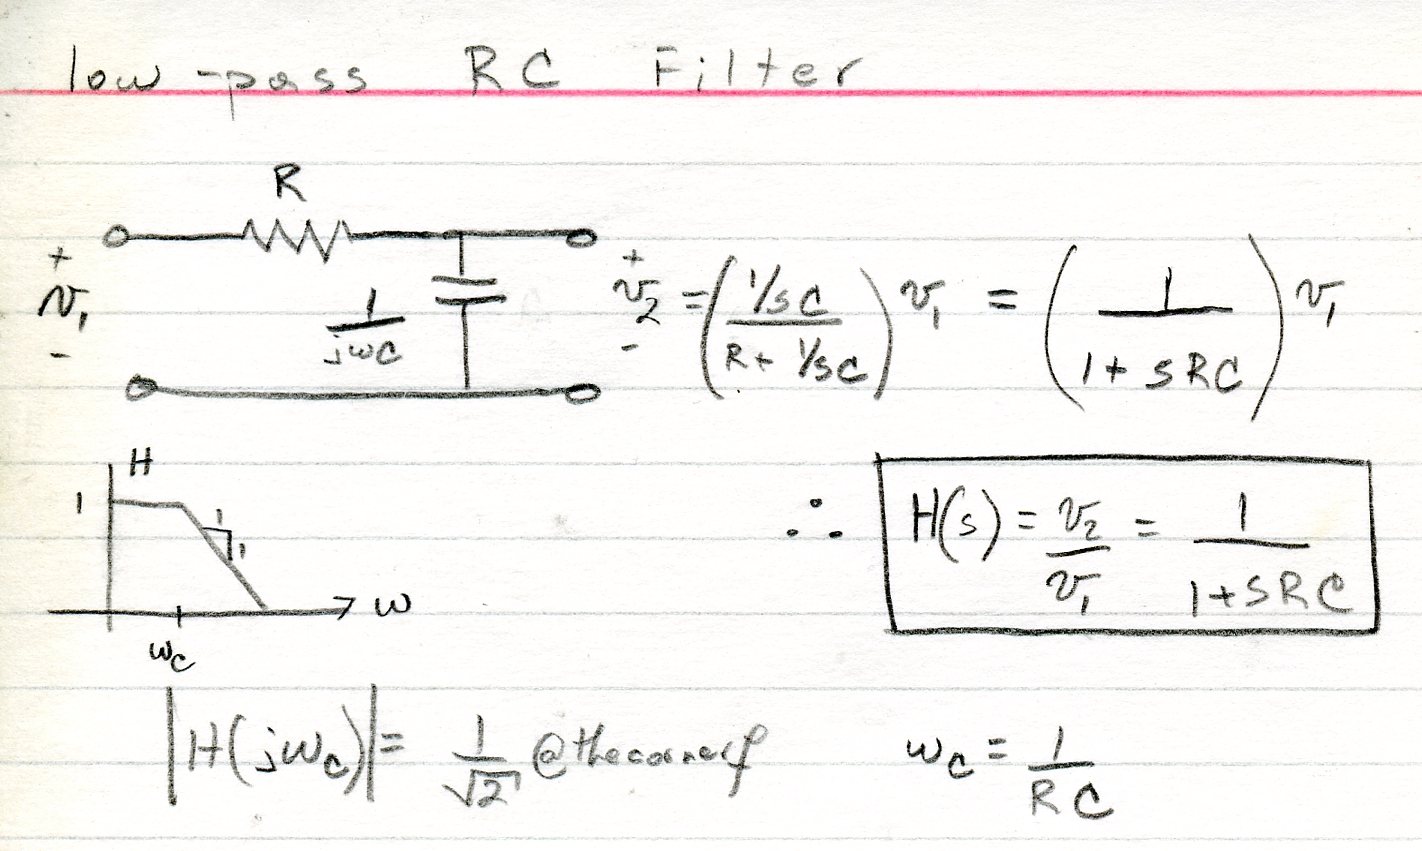 low-pass RC Filter
R
+ v₁ -
1/jωC
+ v₂ - = ( (1/sC) / (R + 1/sC) ) v₁ = ( 1 / (1 + sRC) ) v₁
H
1
1
1
ω
ωc
∴ H(s) = v₂/v₁ = 1 / (1 + sRC)
|H(jωc)| = 1/√2 @ the corner f
ωc = 1/RC